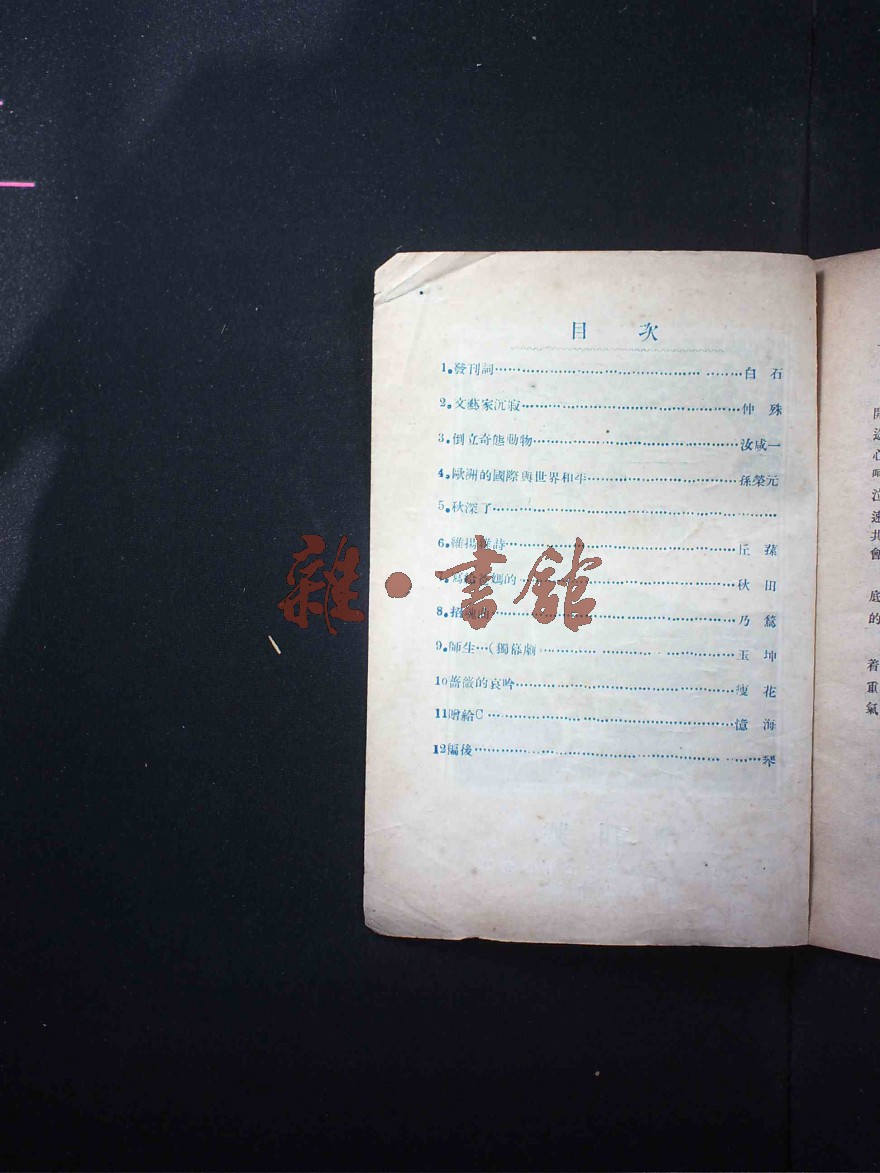 目 次
1.發刊詞……白 石
2.文藝家沉寂……仲 殊
3.倒立奇態動物……汝咸一
4.歐洲的國際與世界和平……孫榮元
5.秋深了……
6.維揚 詩……丘 蓀
寫給 媽的……秋 田
8.招魂曲……乃 鶩
9.師生…(獨幕劇……玉 坤
10薔薇的哀吟……瘦 花
11贈給C……憶 海
12編後……琹
雜·書館
開
心
泣
速
共
會
底
的
着
重
氣